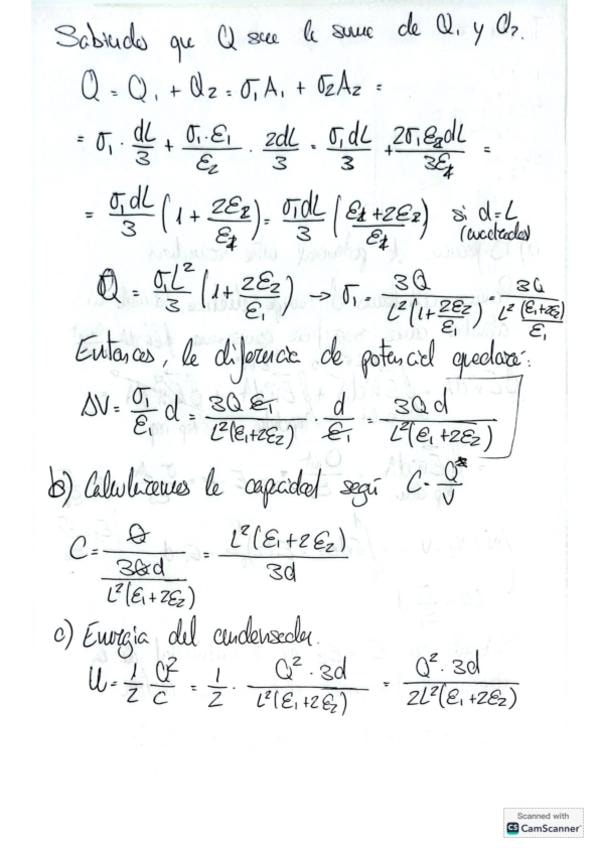 Sabiendo que Q sea la suma de Q₁ y Q₂.
Q = Q₁ + Q₂ = σ₁A₁ + σ₂A₂ =
= σ₁ · dL/3 + σ₁·ε₁/ε₂ · 2dL/3 = σ₁dL/3 + 2σ₁ε₂dL/3ε₁ =
= σ₁dL/3 (1 + 2ε₂/ε₁) = σ₁dL/3 ((ε₁+2ε₂)/ε₁) si d=L (cuadrados)
Q = σ₁L²/3 (1 + 2ε₂/ε₁) → σ₁ = 3Q/(L²(1+2ε₂/ε₁)) = 3Q/(L²(ε₁+2ε₂)/ε₁)
Entonces, la diferencia de potencial quedará:
ΔV = σ₁/ε₁ d = 3Qε₁/(L²(ε₁+2ε₂)) · d/ε₁ = 3Qd/(L²(ε₁+2ε₂))
b) Calcularemos la capacidad segú C = Q/V
C = Q/(3Qd/(L²(ε₁+2ε₂))) = L²(ε₁+2ε₂)/3d
c) Energía del condensador.
U = 1/2 Q²/C = 1/2 · Q²·3d/(L²(ε₁+2ε₂)) = Q²·3d/(2L²(ε₁+2ε₂))
Scanned with
CS CamScanner